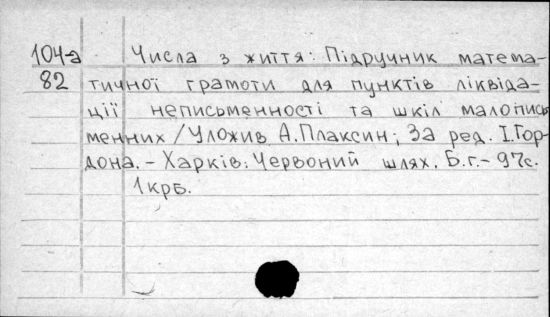 104-а Числа з життя: Підручник матема-
82 тичної грамоти для пунктів ліквіда-
ції неписьменності та шкіл малопись
менних / Уложив А.Плаксин; За ред. І.Гор-
дона. - Харків: Червоний шлях, Б.г. - 97с.
1крб.